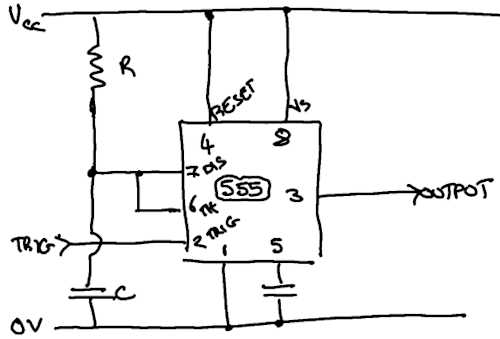 Vcc
R
RESET
Vs
4
8
7 DIS
555
6 TH
3
OUTPUT
TRIG
2 TRIG
1
5
C
0V